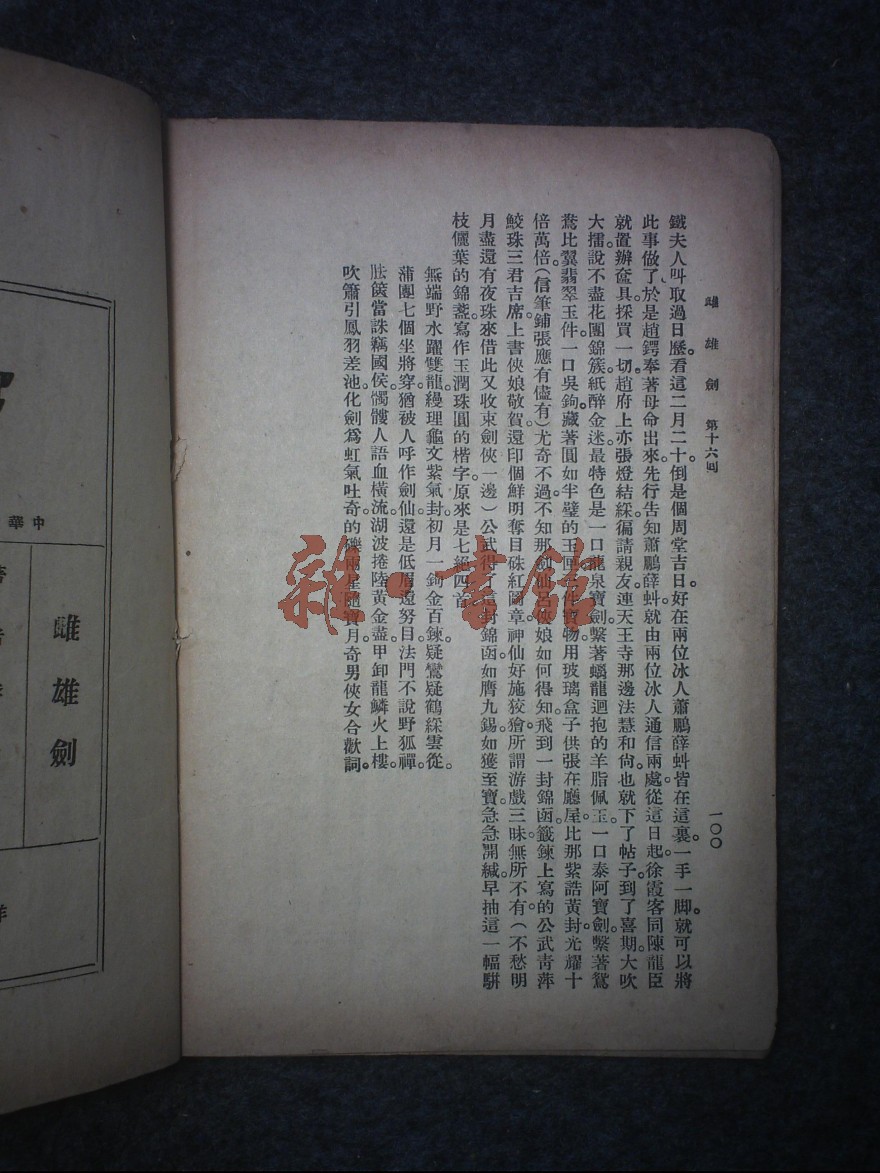 雌雄劍　第十六回　一〇〇
鐵夫人叫取過日曆。看這二月二十。倒是個周堂吉日。好在兩位冰人蕭鵬薛蚪皆在這裏。一手一脚。就可以將
此事做了。於是趙鍔奉著母命出來。先行告知蕭鵬薛蚪。就由兩位冰人通信兩處。從這日起。徐霞客同陳龍臣
就置辦奩具。採買一切。趙府上亦張燈結綵。徧請親友。連天王寺那邊法慧和尙也就下了帖子。到了喜期。大吹
大擂。說不盡花團錦簇。紙醉金迷。最特色是一口龍泉寶劍。繫著螭龍迴抱的羊脂佩玉。一口泰阿寶劍。繫著鴛
鴦比翼翡翠玉件。一口吳鉤。藏著圓如半璧的玉匣。三件寶物。用玻璃盒子供張在廳屋。比那紫誥黃封光耀十
倍萬倍。(信筆鋪張應有儘有)尤奇不過。不知那劍仙呂俠娘如何得知。飛到一封錦函。籤鍊上寫的公武靑萍
鮫珠三君吉席。上書俠娘敬賀。還印個鮮明奪目硃紅圖章。神仙好施狡獪。所謂游戲三昧。無所不有。(不愁明
月盡還有夜珠來借此又收束劍俠一邊)公武得了這封錦函。如膺九錫。如獲至寶。急急開緘。早抽這一幅駢
枝儷葉的錦箋。寫作玉潤珠圓的楷字。原來是七絕四首。
無端野水躍雙龍。縵理龜文紫氣封。初月一鉤金百鍊。疑鸞疑鶴綵雲從。
蒲團七個坐將穿。猶被人呼作劍仙。還是低眉還努目。法門不說野狐禪。
胠篋當誅竊國侯。髑髏人語血橫流。湖波捲陸黃金盡。甲卸龍鱗火上樓。
吹簫引鳳羽差池。化劍爲虹氣吐奇。的礫兩星隨寶月。奇男俠女合歡詞。
中華
雌雄劍
雜·書館